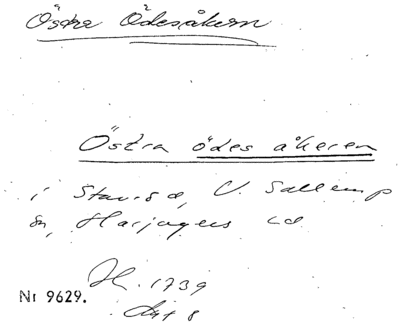 Östra Ödesåkern
Östra ödes åkeren
i Stavsd, V. Sallerup
sn, Harjagers hd
H. 1739
Nr 9629.
Akt 8